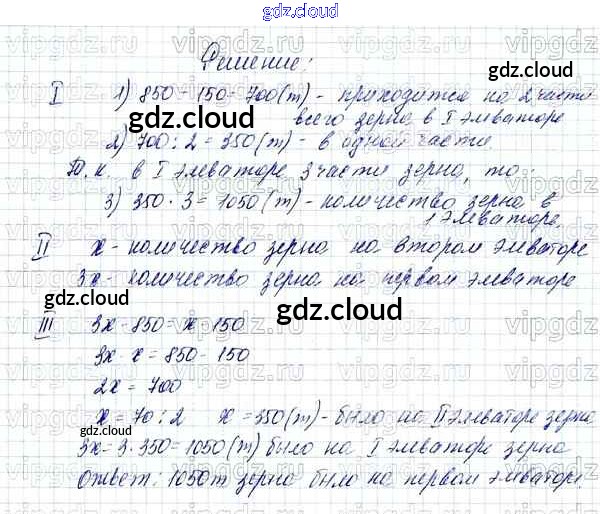 gdz.cloud
Решение:
I 1) 850 - 150 = 700 (т) - приходится на 2 части
всего зерна в I элеваторе
2) 700 : 2 = 350 (т) - в одной части.
Т. к. в I элеваторе 3 части зерна, то:
3) 350 · 3 = 1050 (т) - количество зерна в
1 элеваторе.
II x - количество зерна на втором элеваторе
3x - количество зерна на первом элеваторе
gdz.cloud
III 3x - 850 = x - 150
3x - x = 850 - 150
2x = 700
x = 70 : 2 x = 350 (т) - было на II элеваторе зерна
3x = 3 · 350 = 1050 (т) было на I элеваторе зерна
Ответ: 1050 т зерна было на первом элеваторе.